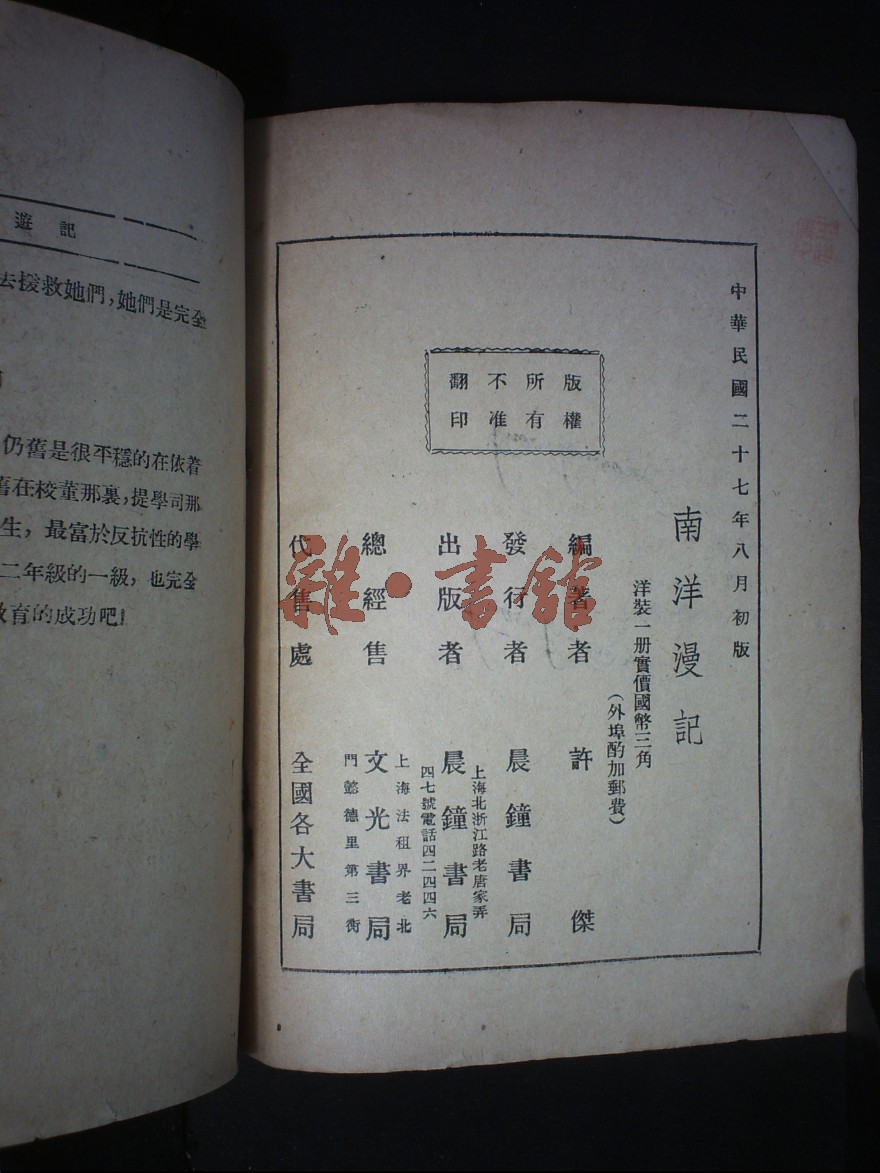 中華民國二十七年八月初版
南洋漫記
洋裝一册實價國幣三角
(外埠酌加郵費)
版權
所有
不准
翻印
編著者 許傑
發行者 晨鐘書局
出版者 晨鐘書局
上海北浙江路老唐家弄
四七號電話四二四四六
總經售 文光書局
上海法租界老北
門懿德里第三衖
代售處 全國各大書局
雜·書館
遊記
去援救她們,她們是完全
仍舊是很平穩的在依着
舊在校董那裏,提學司那
生,最富於反抗性的學
二年級的一級,也完全
教育的成功吧!